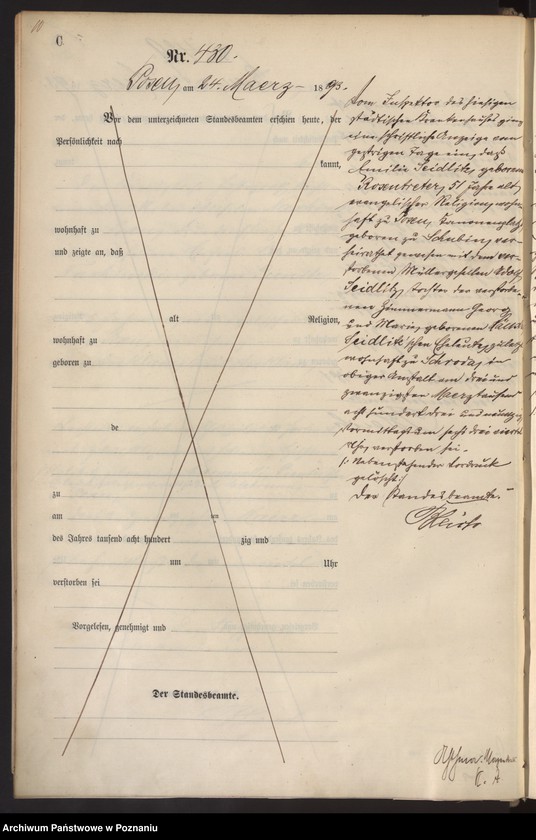 C
Nr. 480.
Posen, am 24. Maerz 1893.
Vor dem unterzeichneten Standesbeamten erschien heute, der
Persönlichkeit nach
kannt,
wohnhaft zu
und zeigte an, daß
alt Religion,
wohnhaft zu
geboren zu
de
zu
am um
des Jahres tausend acht hundert zig und
um Uhr
verstorben sei
Vorgelesen, genehmigt und
Der Standesbeamte.
Vom Inspektor des hiesigen
städtischen Krankenhauses ging
eine schriftliche Anzeige vom
gestrigen Tage ein, daß
Emilie Seidlitz, geborene
Rosentreter, 51 Jahre alt,
evangelischer Religion, wohn-
haft zu Posen,
geboren zu Schubin, ver-
heirathet gewesen mit dem ver-
storbenen Müllergesellen
Seidlitz, Tochter der verstorbe-
nen Zimmermann Georg
und Marie, geborenen
Seidlitz'schen Eheleute, zuletzt
wohnhaft zu Schroda, in
obiger Anstalt am drei und
zwanzigsten Maerz tausend
acht hundert drei und neunzig
Vormittags um sechs drei viertel
Uhr verstorben sei.
Nebenstehender Vordruck
gelöscht.
Der Standesbeamte.
Archiwum Państwowe w Poznaniu